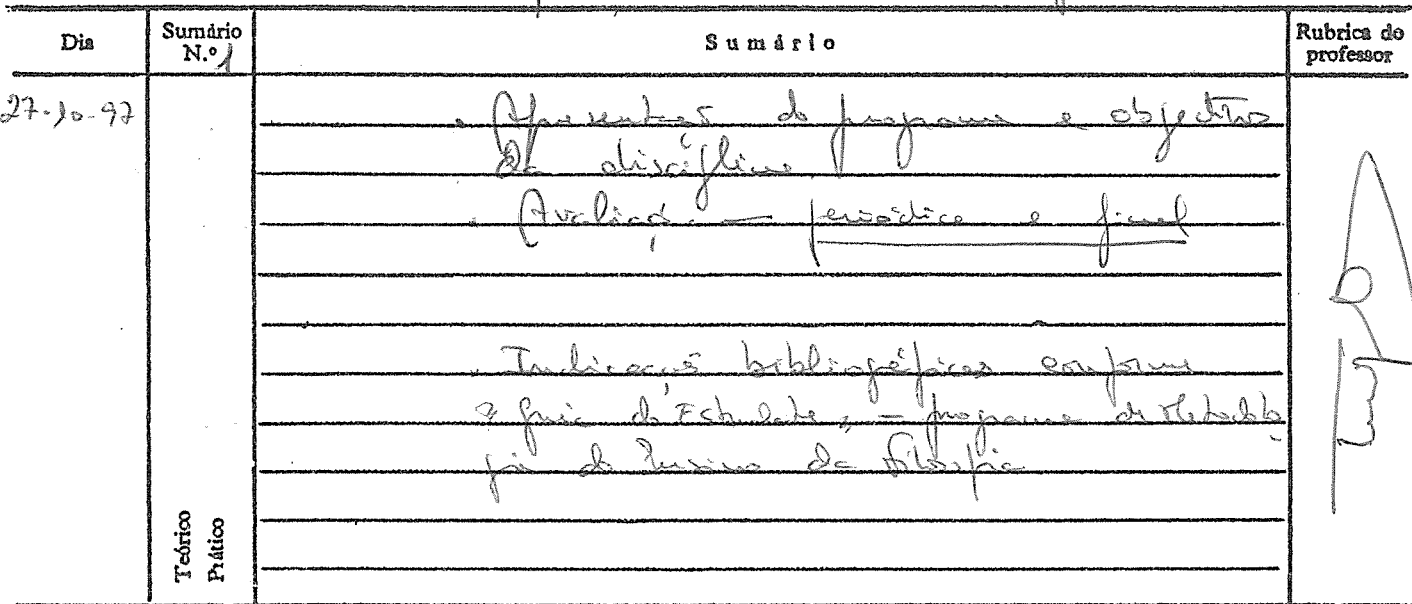 Dia
Sumário
N.º 1
Sumário
Rubrica do
professor
27-10-97
. Apresentação do programa e objectivos
da disciplina
. Avaliação — periódica e final
. Indicações bibliográficas conforme
"Guia do Estudante" — programa de Metodolo
gia do Ensino da Filosofia
Teórico
Prático